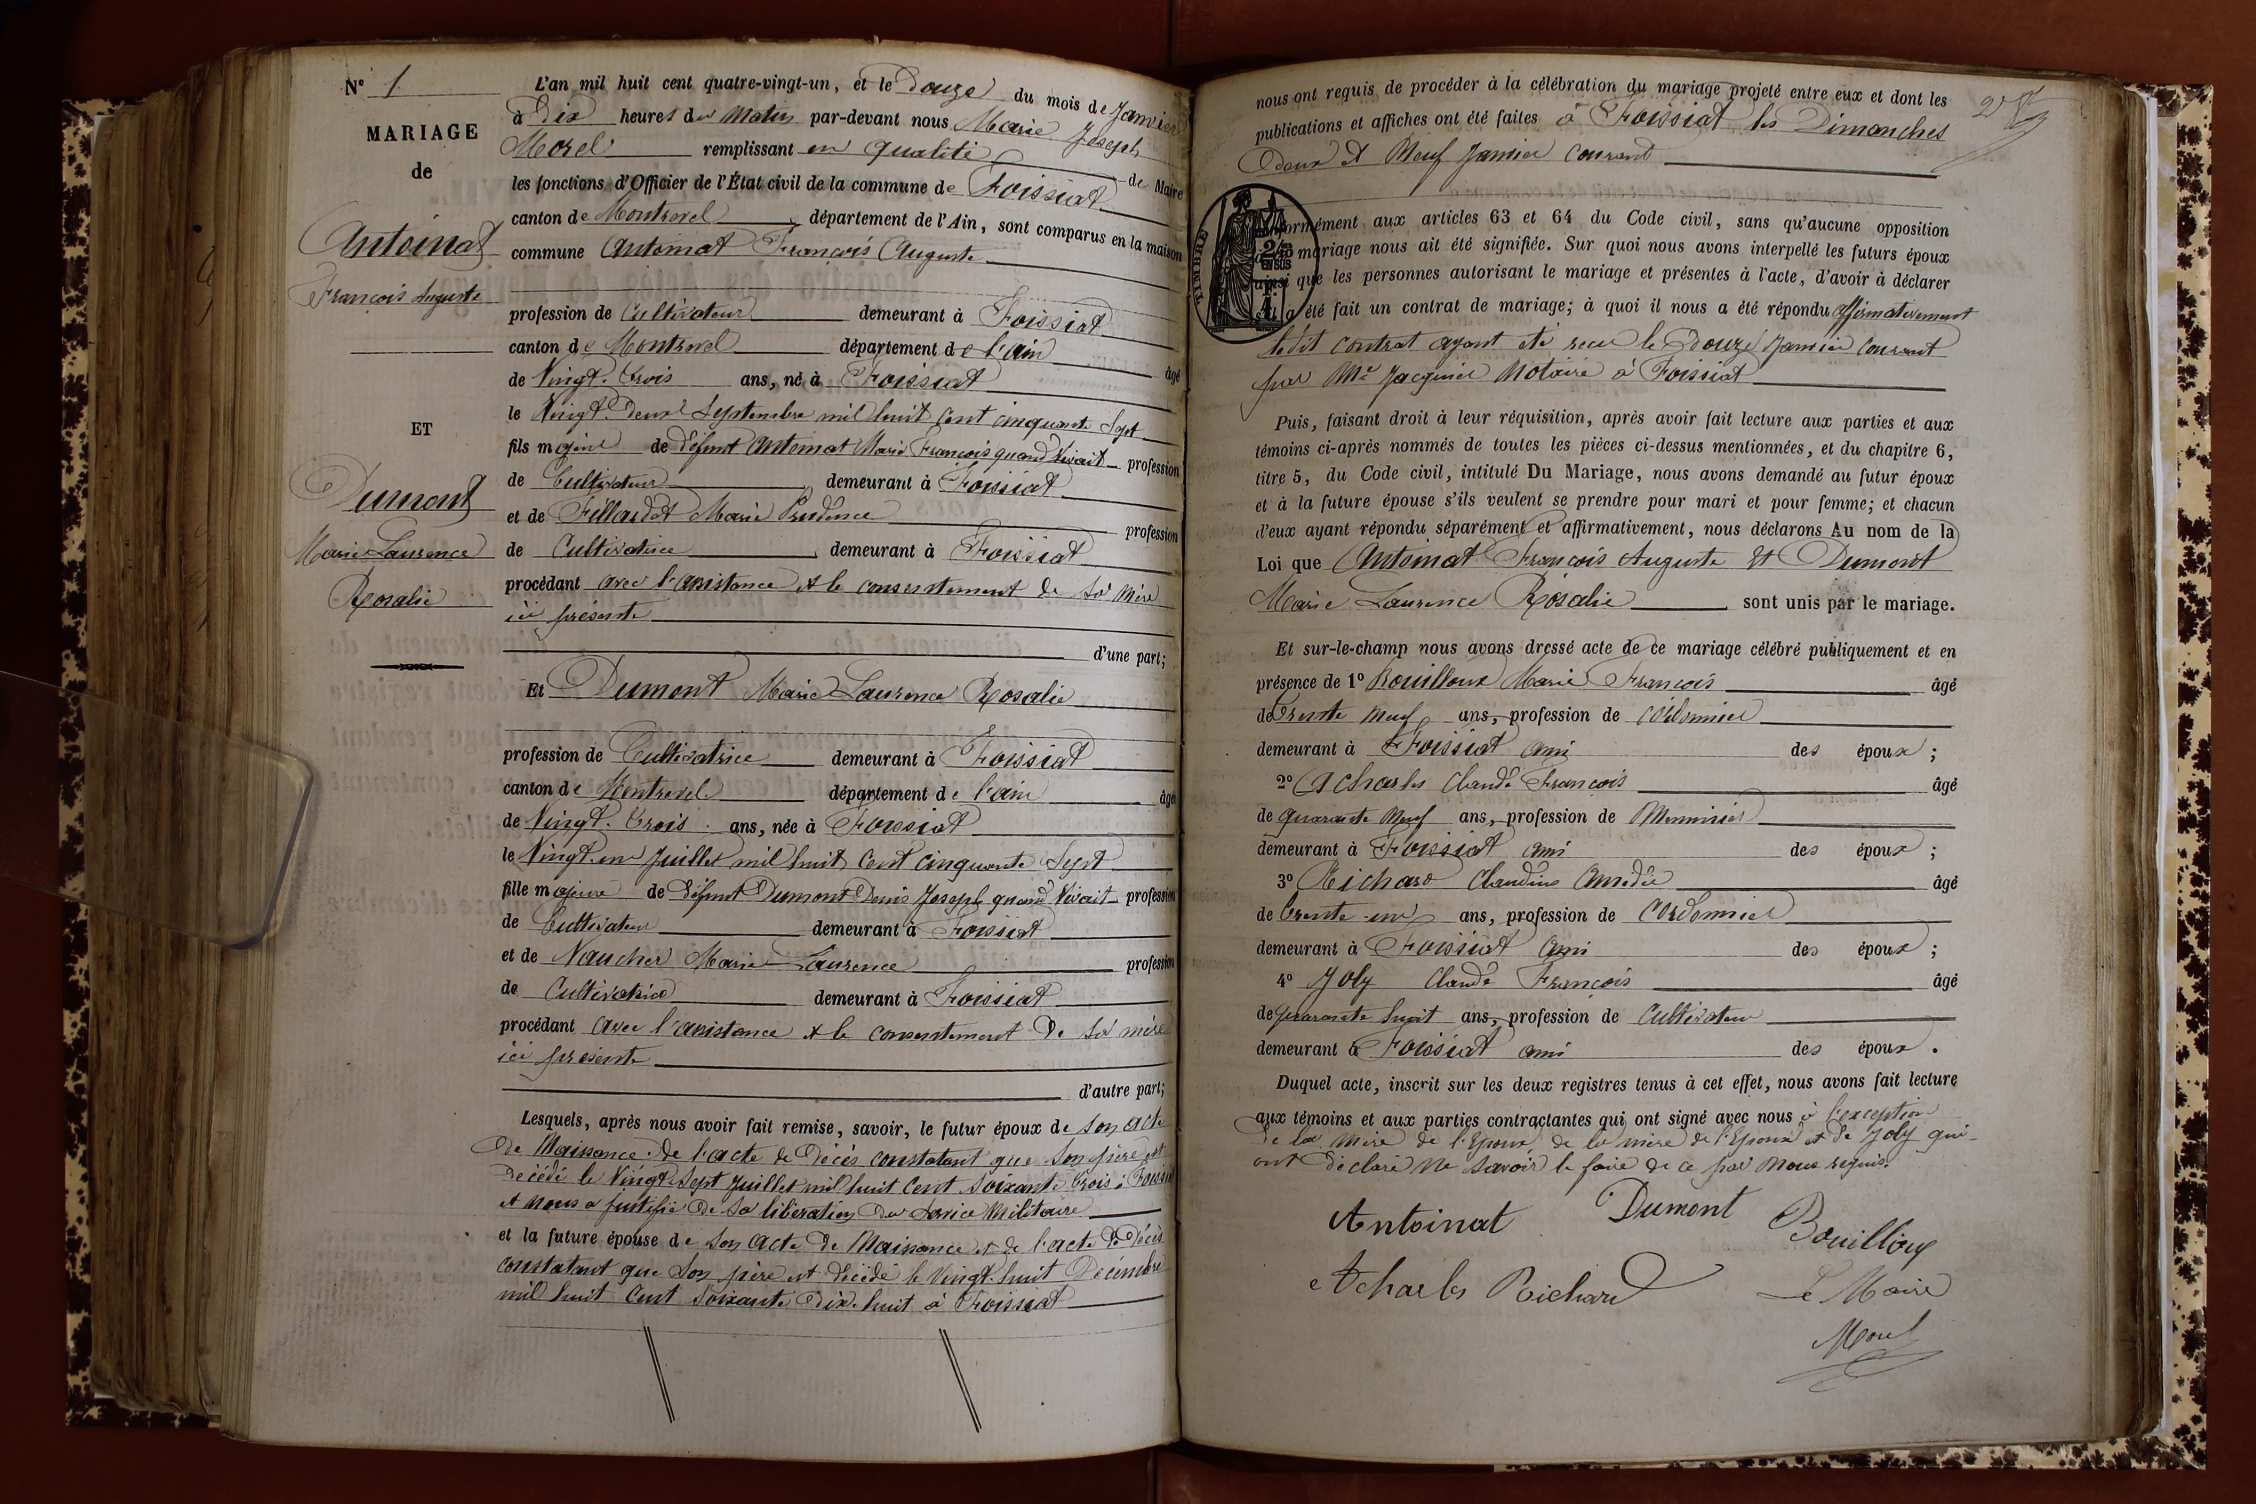 N° 1
MARIAGE
de
Antoinat
François Auguste
ET
Dumont
Marie Laurence
Rosalie
L'an mil huit cent quatre-vingt-un, et le Douze du mois de Janvier
à Dix heures du Matin par-devant nous Marie Joseph
Morel remplissant en qualité de Maire
les fonctions d'Officier de l'État civil de la commune de Foissiat
canton de Montrevel, département de l'Ain, sont comparus en la maison
commune Antoinat François Auguste
profession de Cultivateur demeurant à Foissiat
canton de Montrevel département de l'ain âgé
de Vingt-trois ans, né à Foissiat
le Vingt-Deux Septembre mil huit cent cinquante Sept
fils majeur de défunt Antoinat Marie François quand vivait profession
de Cultivateur demeurant à Foissiat
et de Fillardet Marie Prudence profession
de Cultivatrice demeurant à Foissiat
procédant avec l'assistance et le consentement de sa mère
ici présente
d'une part;
Et Dumont Marie Laurence Rosalie
profession de Cultivatrice demeurant à Foissiat
canton de Montrevel département de l'ain âgée
de Vingt-trois ans, née à Foissiat
le Vingt-un Juillet mil huit cent cinquante Sept
fille majeure de défunt Dumont Denis Joseph quand vivait profession
de Cultivateur demeurant à Foissiat
et de Naucher Marie Laurence profession
de Cultivatrice demeurant à Foissiat
procédant avec l'assistance et le consentement de sa mère
ici présente
d'autre part;
Lesquels, après nous avoir fait remise, savoir, le futur époux de son acte
de Naissance de l'acte de décès constatant que son père est
décédé le Vingt-Sept Juillet mil huit cent soixante trois à Foissiat
et nous a justifié de sa libération du Service Militaire
et la future épouse de son acte de Naissance et de l'acte de décès
constatant que son père est décédé le Vingt-huit Décembre
mil huit cent soixante dix-huit à Foissiat
2
nous ont requis de procéder à la célébration du mariage projeté entre eux et dont les
publications et affiches ont été faites à Foissiat les Dimanches
deux et Neuf Janvier courant
TIMBRE
conformément aux articles 63 et 64 du Code civil, sans qu'aucune opposition
mariage nous ait été signifiée. Sur quoi nous avons interpellé les futurs époux
ainsi que les personnes autorisant le mariage et présentes à l'acte, d'avoir à déclarer
a été fait un contrat de mariage; à quoi il nous a été répondu affirmativement
ledit contrat ayant été reçu le douze Janvier courant
par Me Jacquier Notaire à Foissiat
Puis, faisant droit à leur réquisition, après avoir fait lecture aux parties et aux
témoins ci-après nommés de toutes les pièces ci-dessus mentionnées, et du chapitre 6,
titre 5, du Code civil, intitulé Du Mariage, nous avons demandé au futur époux
et à la future épouse s'ils veulent se prendre pour mari et pour femme; et chacun
d'eux ayant répondu séparément et affirmativement, nous déclarons Au nom de la
Loi que Antoinat François Auguste et Dumont
Marie Laurence Rosalie sont unis par le mariage.
Et sur-le-champ nous avons dressé acte de ce mariage célébré publiquement et en
présence de 1° Bouilloux Marie François âgé
de trente neuf ans, profession de cordonnier
demeurant à Foissiat ami des époux;
2° Acharles Claude François âgé
de quarante neuf ans, profession de Menuisier
demeurant à Foissiat ami des époux;
3° Richard Claudius Amédée âgé
de trente-un ans, profession de cordonnier
demeurant à Foissiat ami des époux;
4° Joly Claude François âgé
de quarante huit ans, profession de Cultivateur
demeurant à Foissiat ami des époux.
Duquel acte, inscrit sur les deux registres tenus à cet effet, nous avons fait lecture
aux témoins et aux parties contractantes qui ont signé avec nous à l'exception
de la mère de l'époux, de la mère de l'épouse et de Joly qui
ont déclaré ne savoir le faire de ce par nous requis.
Antoinat Dumont Bouilloux
Acharles Richard Le Maire
Morel